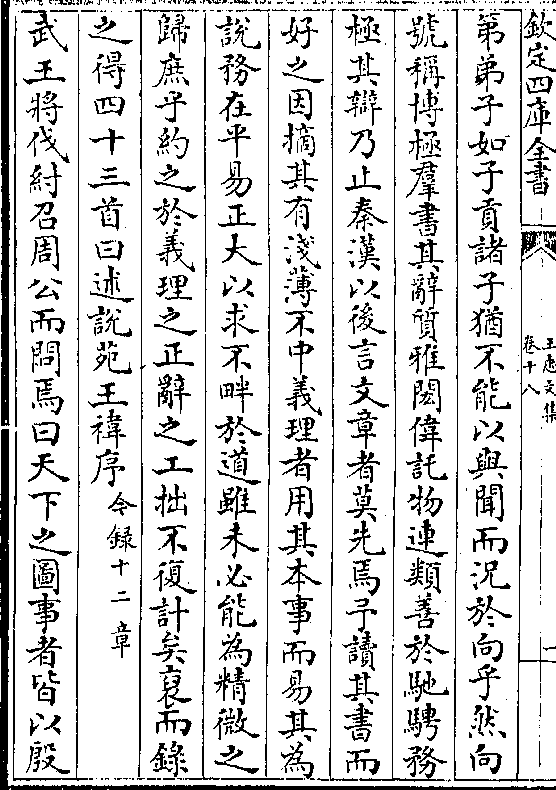 欽定四庫全書
王忠文集
卷十八
一
第弟子如子貢諸子猶不能以與聞而況於向乎然向
號稱博極羣書其辭質雅閎偉託物連類善於馳騁務
極其辯乃止秦漢以後言文章者莫先焉予讀其書而
好之因摘其有淺薄不中義理者用其本事而易其為
說務在平易正大以求不畔於道雖未必能為精微之
歸庶乎約之於義理之正辭之工拙不復計矣裒而錄
之得四十三首曰述說苑王禕序 今錄十二章
武王將伐紂召周公而問焉曰天下之圖事者皆以殷